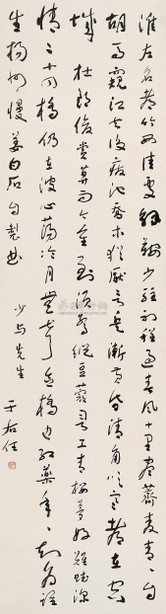 淮左名都竹西佳處解鞍少駐初程過春風十里盡薺麥青々自
胡馬窺江去後廢池喬木猶厭言兵漸黃昏清角吹寒都在空
城 杜郎俊賞算而今重到須驚縱豆蔻詞工青樓夢好難賦深
情二十四橋仍在波心蕩冷月無聲念橋邊紅藥年々知為誰
生 揚州慢 姜白石自製曲
少与先生
于右任